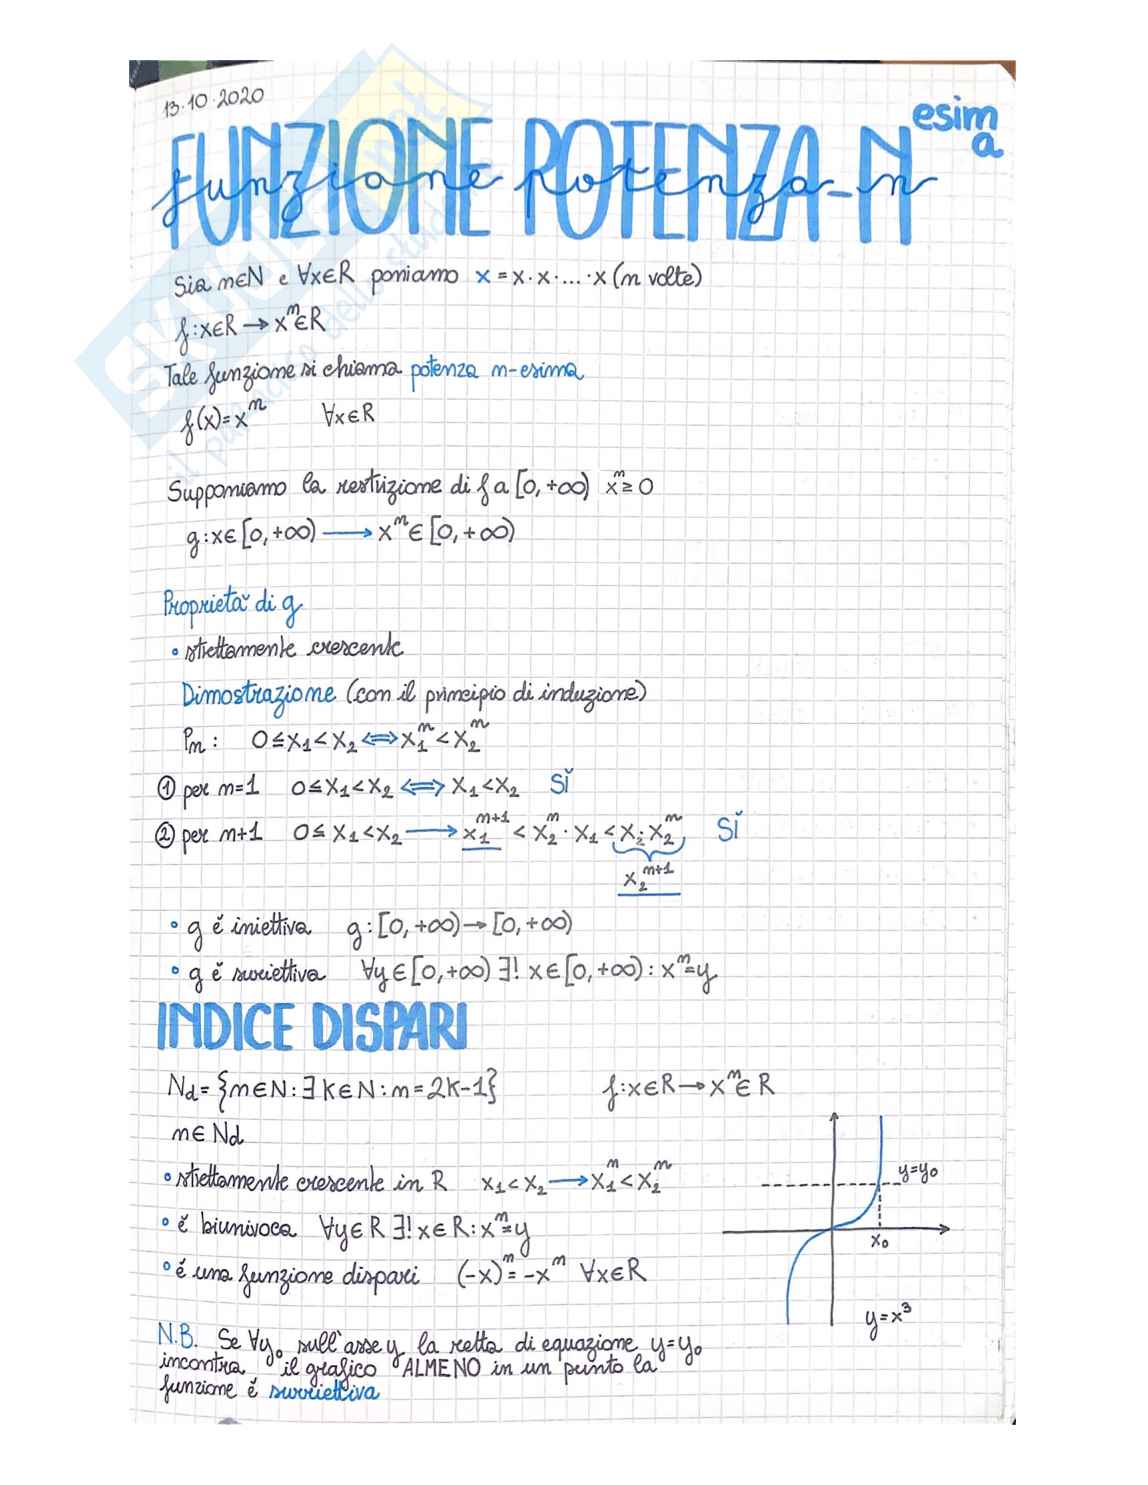 13.10.2020
FUNZIONE POTENZA-N esima
funzione potenza-n
Sia n∈N e ∀x∈R poniamo x = x·x·...·x (n volte)
f:x∈R → xⁿ∈R
Tale funzione si chiama potenza n-esima
f(x)=xⁿ ∀x∈R
Supponiamo la restrizione di f a [0,+∞) xⁿ≥0
g:x∈[0,+∞) → xⁿ∈[0,+∞)
Proprietà di g
• strettamente crescente
Dimostrazione (con il principio di induzione)
Pn: 0≤x₁<x₂ ⟺ x₁ⁿ<x₂ⁿ
① per n=1 0≤x₁<x₂ ⟺ x₁<x₂ SÌ
② per n+1 0≤x₁<x₂ → x₁ⁿ⁺¹ < x₂ⁿ·x₁ < x₂·x₂ⁿ SÌ
x₂ⁿ⁺¹
• g è iniettiva g:[0,+∞)→[0,+∞)
• g è suriettiva ∀y∈[0,+∞) ∃! x∈[0,+∞): xⁿ=y
INDICE DISPARI
Nd={n∈N:∃k∈N:n=2k-1} f:x∈R→xⁿ∈R
n∈Nd
• strettamente crescente in R x₁<x₂ → x₁ⁿ<x₂ⁿ
• è biunivoca ∀y∈R ∃!x∈R:xⁿ=y
• é una funzione dispari (-x)ⁿ=-xⁿ ∀x∈R
y=y₀
x₀
y=x³
N.B. Se ∀y₀ sull'asse y la retta di equazione y=y₀
incontra il grafico ALMENO in un punto la
funzione è suriettiva
SKUOLA.net
il paradiso dello studente